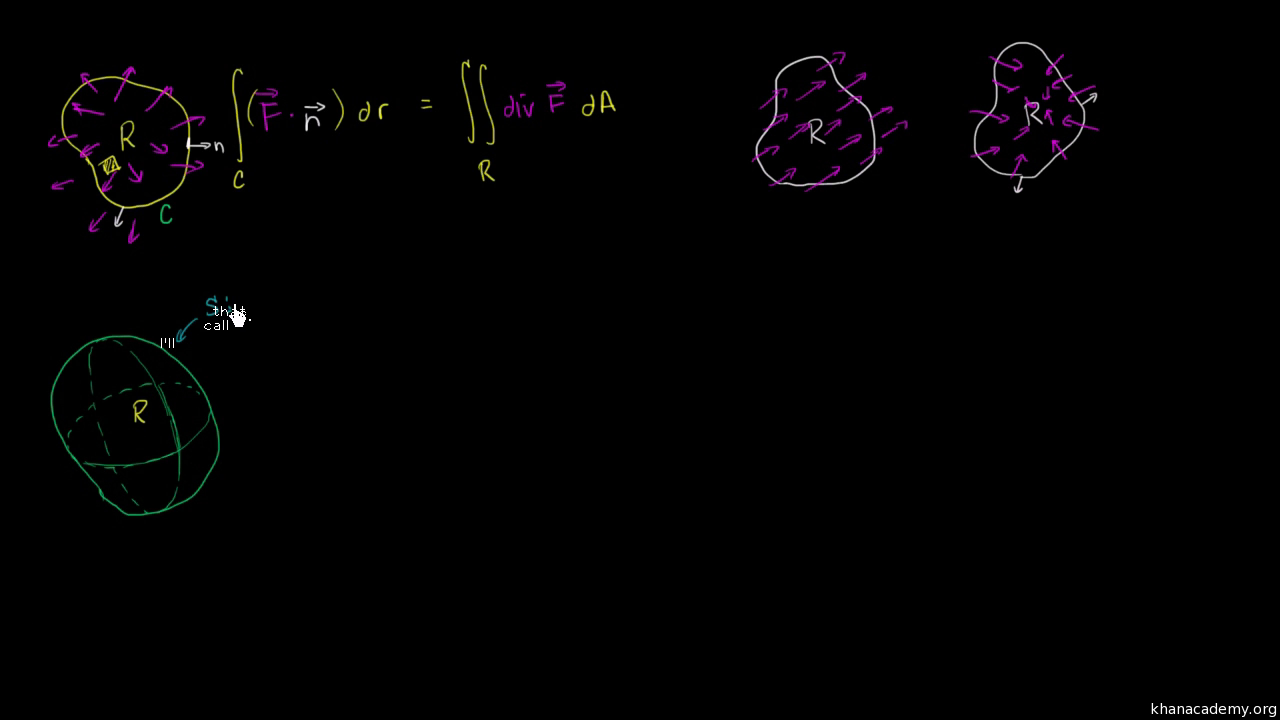 R
n
C
∫_C (F⃗ · n⃗) dr = ∬_R div F⃗ dA
R
R
S
that.
call
I'll
R
khanacademy.org